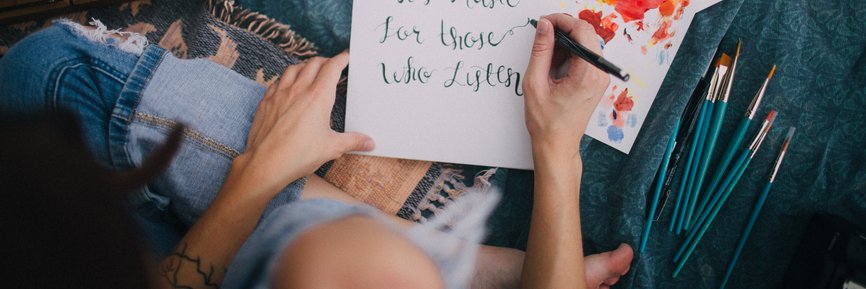 It's Music
For those
Who Listen